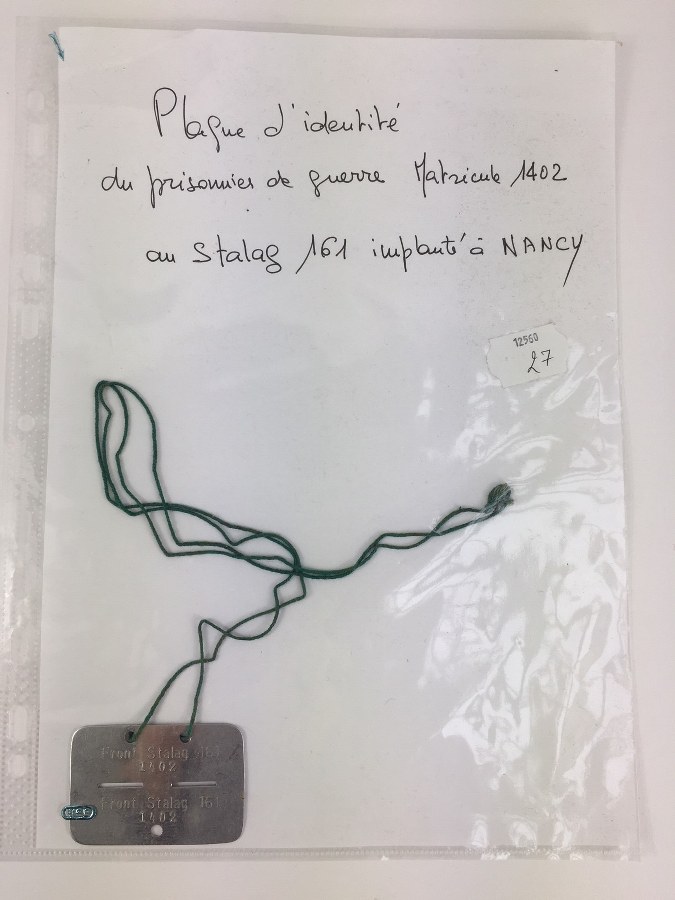 Plaque d'identité
du prisonnier de guerre Matricule 1402
au Stalag 161 implanté à NANCY
12560
27
Front Stalag 161
1402
Front Stalag 161
1402